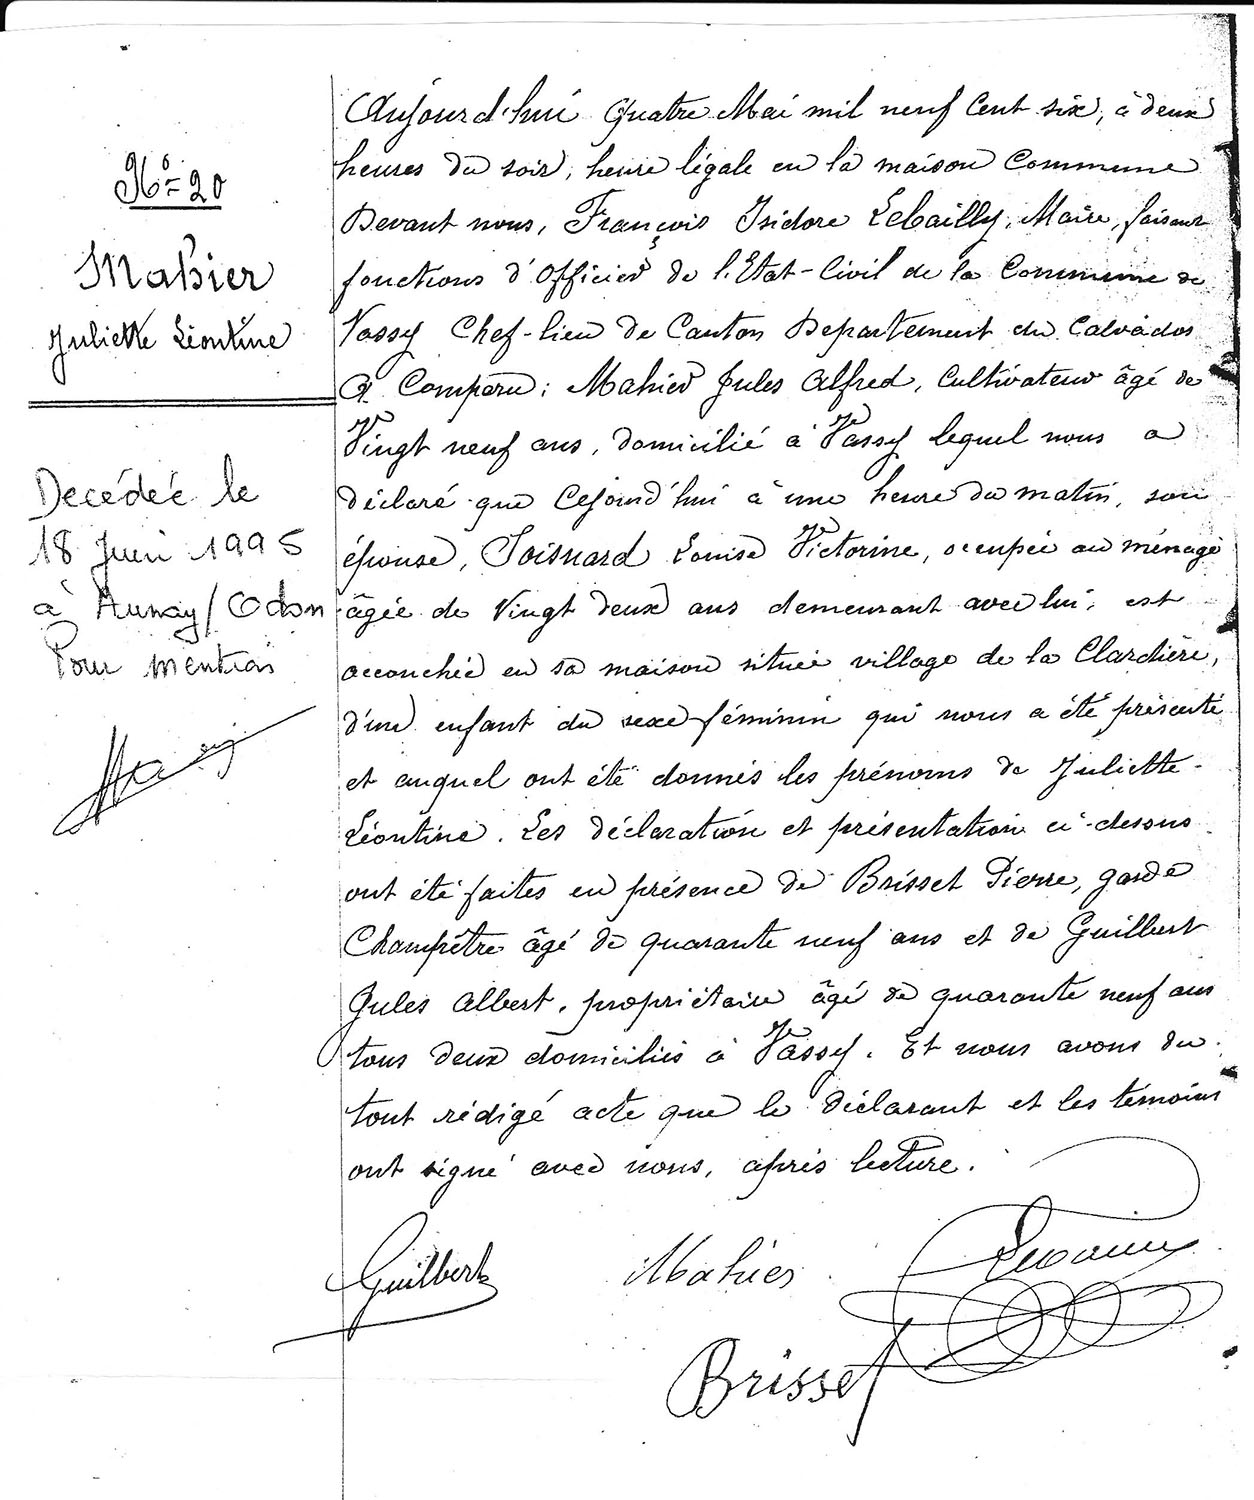 N° 20
Mahier
Juliette Léontine
Decédée le
18 Juin 1995
à Aunay/Odon
Pour mention
Aujourd'hui quatre Mai mil neuf cent six, à deux
heures du soir, heure légale en la maison Commune
Devant nous, François Isidore Lebailly, Maire, faisant
fonctions d'Officier de l'Etat-Civil de la Commune de
Vassy Chef-lieu de Canton Departement du Calvados
A Comparu: Mahier Jules Alfred, Cultivateur âgé de
Vingt neuf ans, domicilié à Vassy lequel nous a
déclaré que Cejourd'hui à une heure du matin, son
épouse, Toisnard Louise Victorine, occupée au ménage
âgée de Vingt deux ans demeurant avec lui, est
accouchée en sa maison située village de la Clardière,
d'un enfant du sexe féminin qui nous a été présenté
et auquel ont été donnés les prénoms de Juliette-
Léontine. Les déclaration et présentation ci-dessus
ont été faites en présence de Brisset Pierre, garde
Champêtre âgé de quarante neuf ans et de Guilbert
Jules Albert, propriétaire âgé de quarante neuf ans
tous deux domiciliés à Vassy. Et nous avons du
tout rédigé acte que le déclarant et les témoins
ont signé avec nous, après lecture.
Guilbert Mahier
Brisset